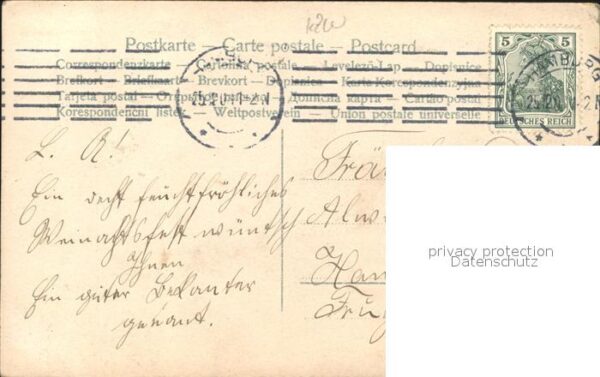 Postkarte — Carte postale — Postcard
Correspondenzkarte — Cartolina postale — Levelező-Lap — Dopisnice
Brefkort — Briefkaart — Brevkort — Dopisnica — Karte Korrespondenzyjna
Tarjeta postal — Открытое письмо — Дописна карта — Cartão postal
Korespondenční lístek — Weltpostverein — Union postale universelle
5 5
DEUTSCHES REICH
HAMBURG
L. A!
Ein recht feuchtfröhliches
Weinachtsfest wünscht
Ihnen
Ein guter Bekanter
genant.
Frä
Alw
Ham
privacy protection
Datenschutz